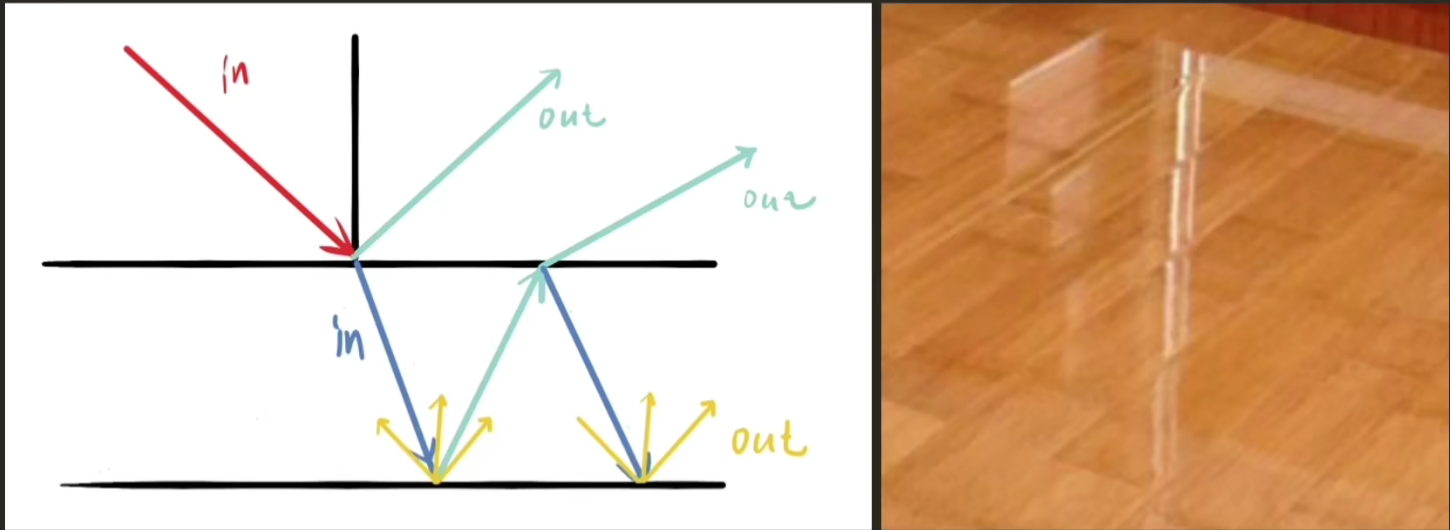 in
out
out
in
out